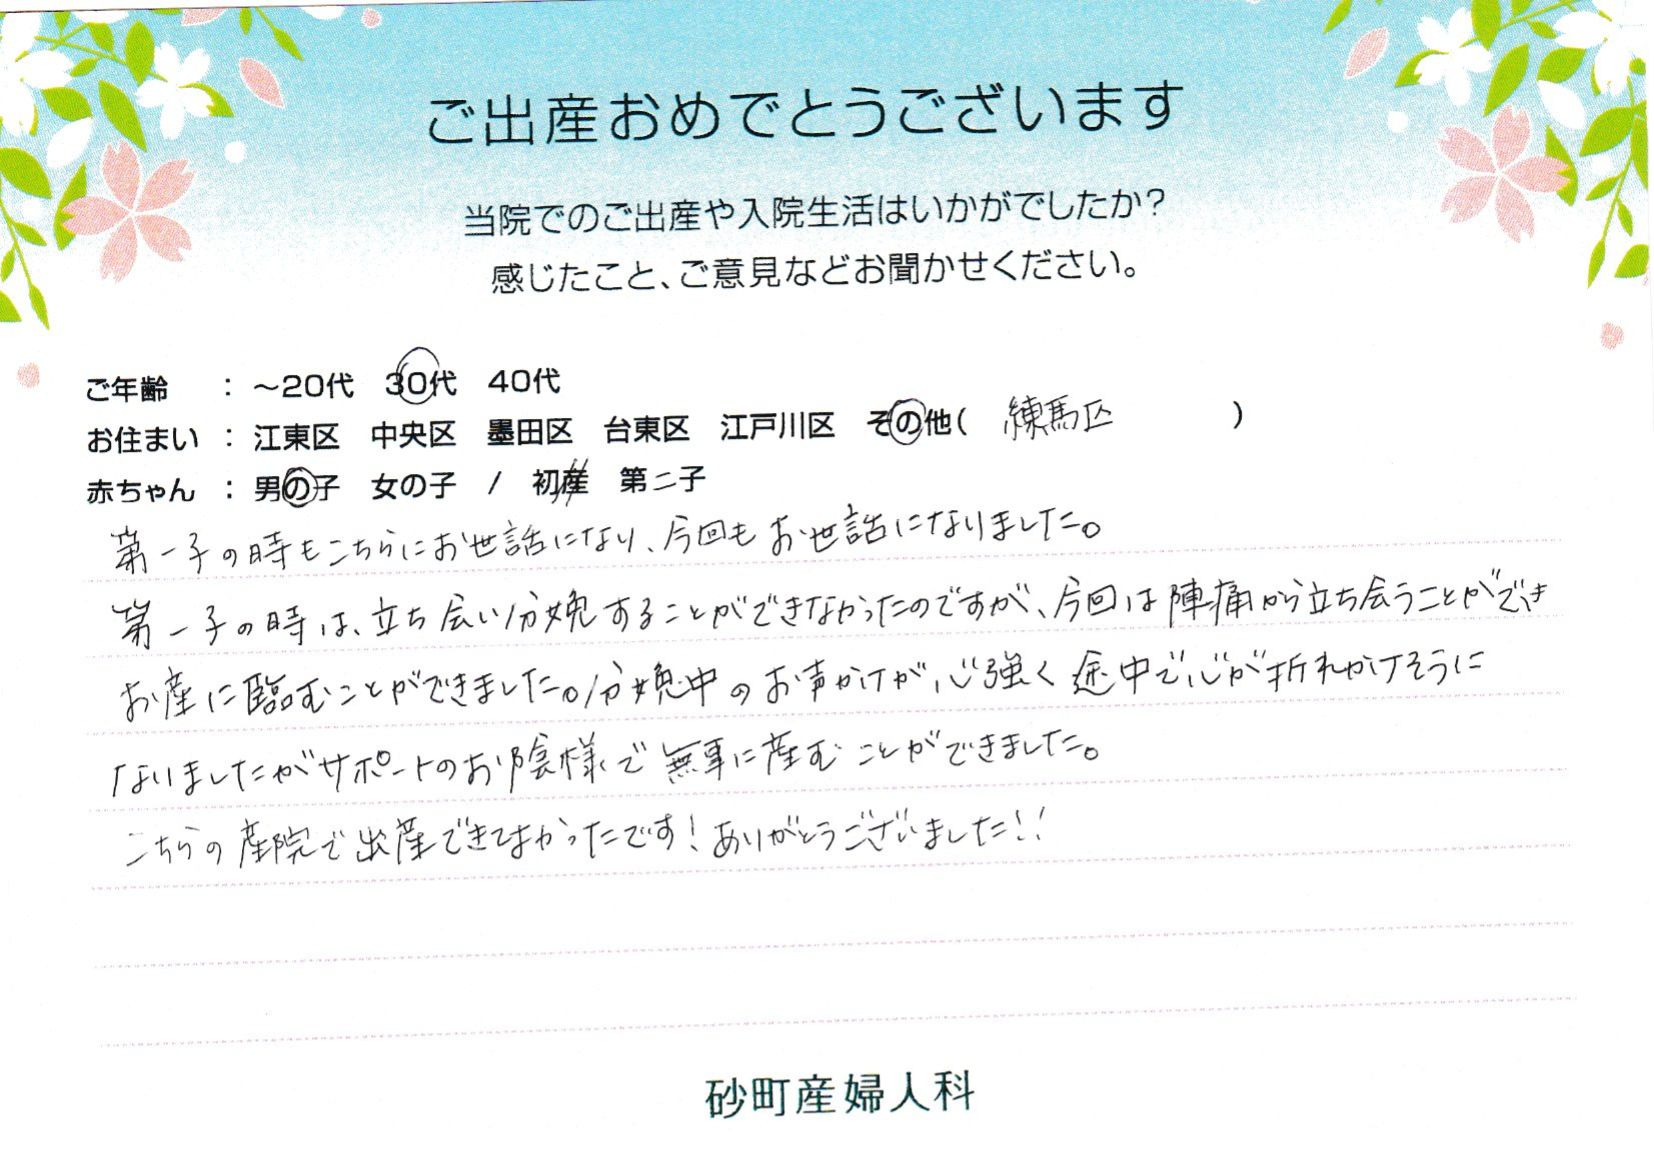 ご出産おめでとうございます
当院でのご出産や入院生活はいかがでしたか?
感じたこと、ご意見などお聞かせください。
ご年齢 : ～20代 30代 40代
お住まい : 江東区 中央区 墨田区 台東区 江戸川区 その他( 練馬区 )
赤ちゃん : 男の子 女の子 / 初産 第二子
第一子の時もこちらにお世話になり、今回もお世話になりました。
第一子の時は、立ち会い分娩することができなかったのですが、今回は陣痛から立ち会うことができ
お産に臨むことができました。分娩中のお声かけが心強く途中で心が折れかけそうに
なりましたがサポートのお陰様で無事に産むことができました。
こちらの産院で出産できてよかったです!ありがとうございました!!
砂町産婦人科